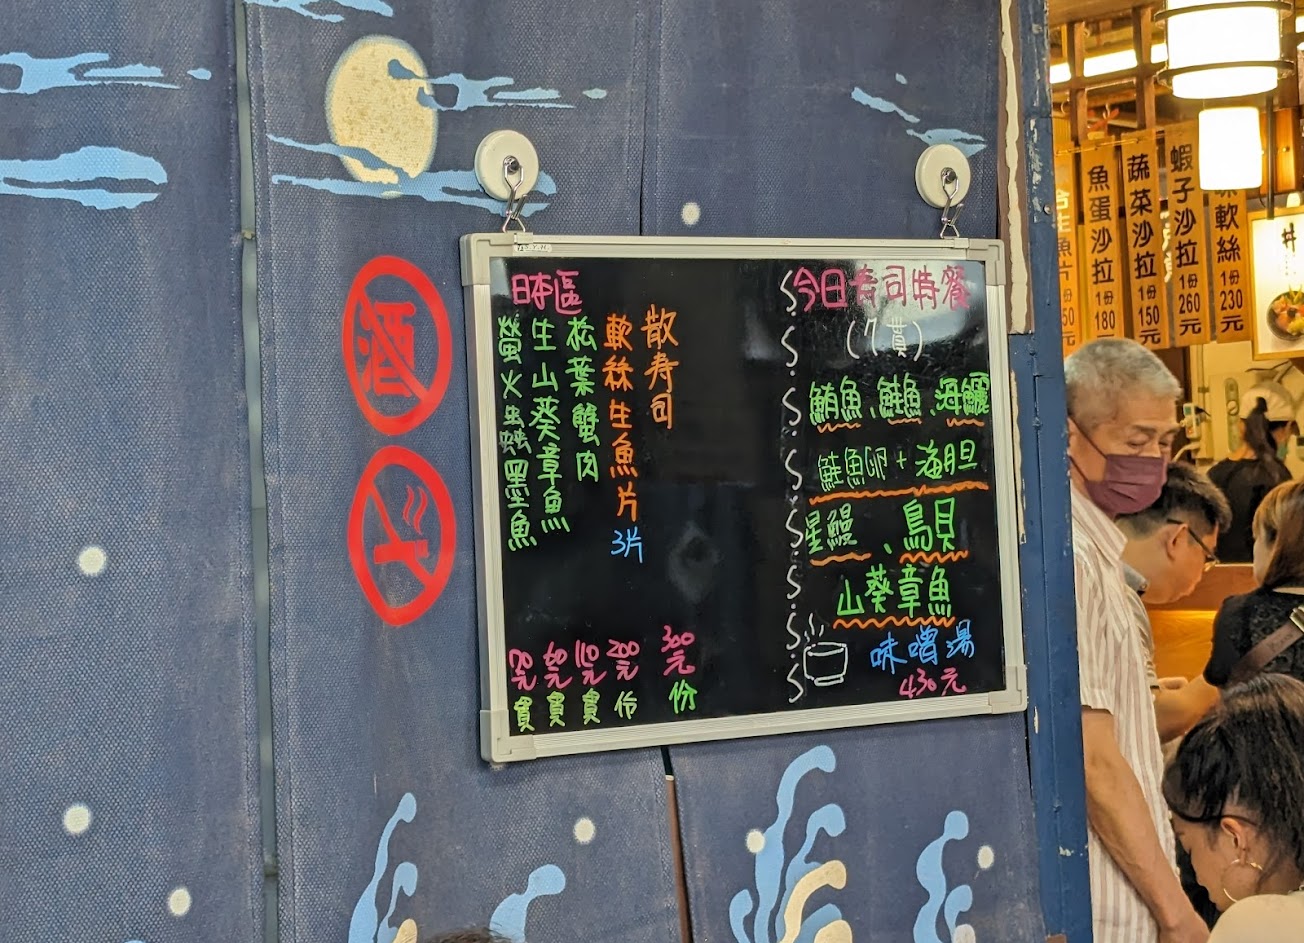 S.Y.H.
日本區
散寿司
300元
份
軟絲生魚片
3片
200元
份
松葉蟹肉
110元
貫
生山葵章魚
60元
貫
螢火蟲墨魚
70元
貫
今日寿司特餐
(7貫)
鮪魚、鮭魚、海鱺
鮭魚卵+海胆
星鰻、鳥貝
山葵章魚
味噌湯
430元
酒
魚蛋沙拉
1份
180
元
蔬菜沙拉
1份
150
元
蝦子沙拉
1份
260
元
軟絲
1份
230
元
生魚片
1份
丼